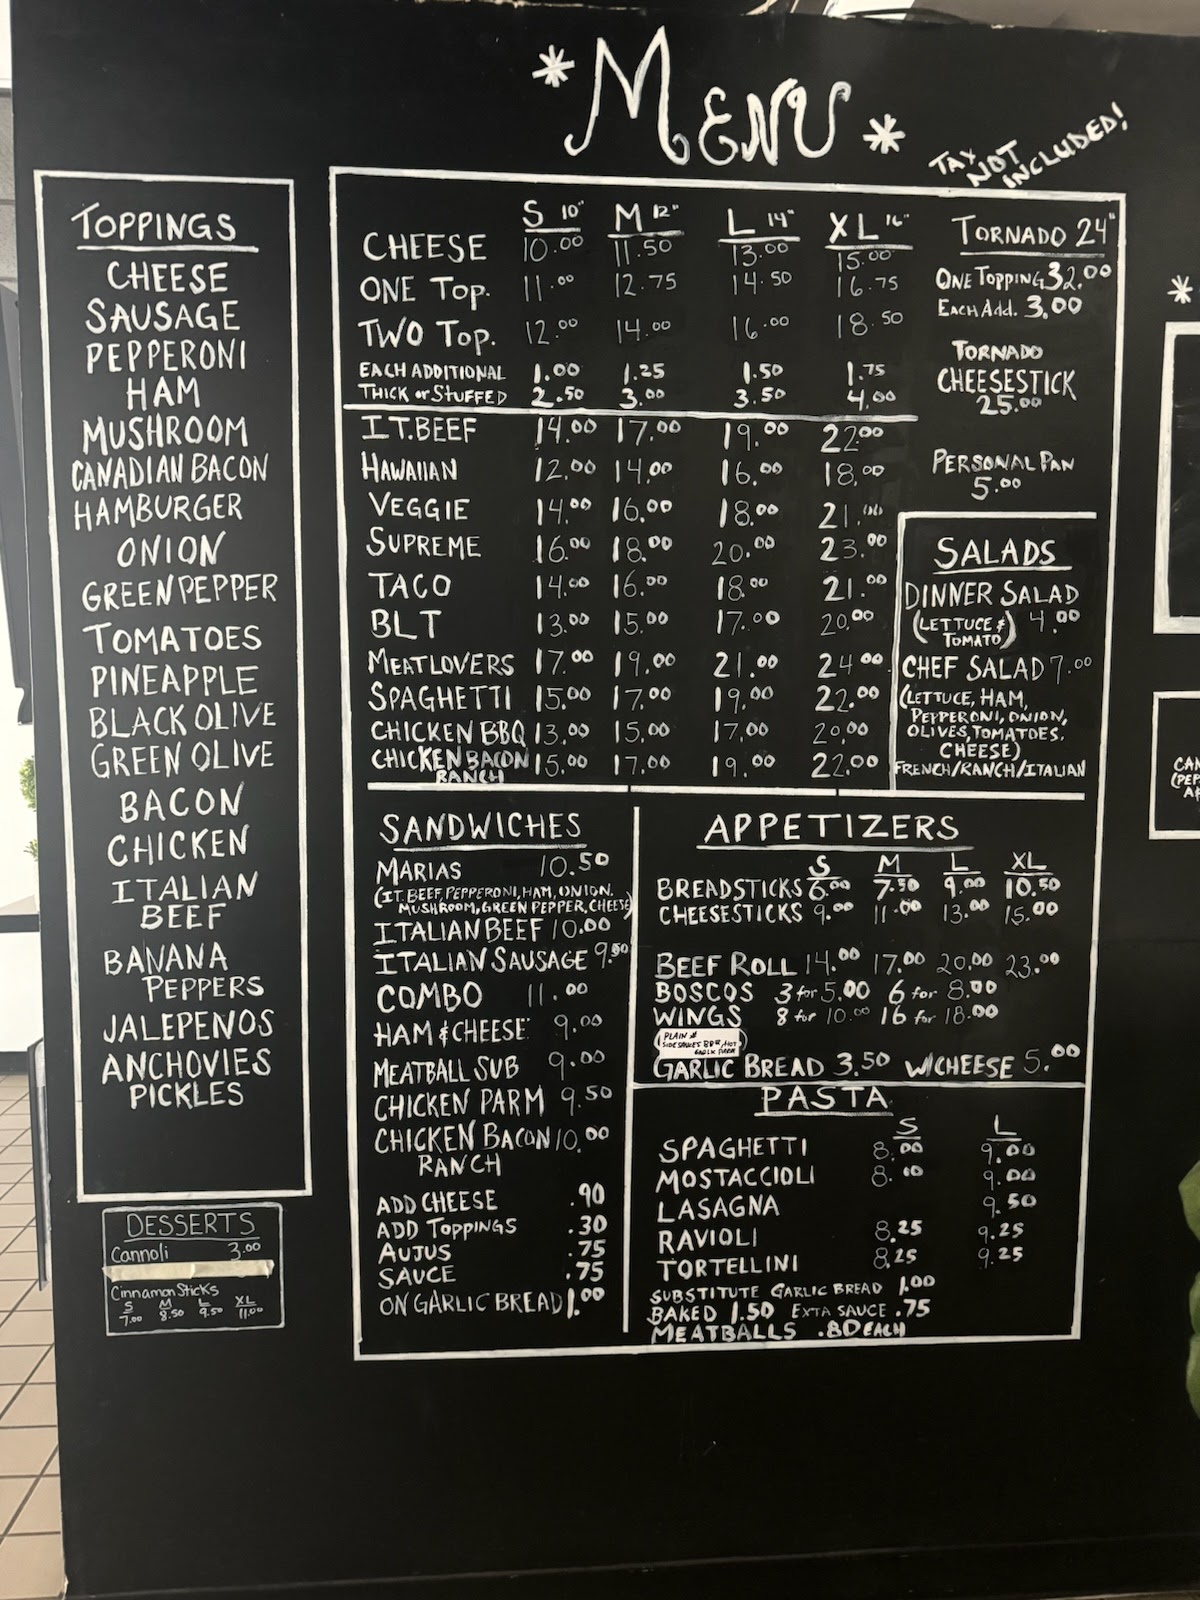 *MENU*
TAX NOT INCLUDED!
TOPPINGS
CHEESE
SAUSAGE
PEPPERONI
HAM
MUSHROOM
CANADIAN BACON
HAMBURGER
ONION
GREEN PEPPER
TOMATOES
PINEAPPLE
BLACK OLIVE
GREEN OLIVE
BACON
CHICKEN
ITALIAN
BEEF
BANANA
PEPPERS
JALEPENOS
ANCHOVIES
PICKLES
DESSERTS
Cannoli 3.00
Cinnamon Sticks
S M L XL
7.00 8.50 9.50 11.00
S 10" M 12" L 14" XL 16"
CHEESE 10.00 11.50 13.00 15.00
ONE TOP. 11.00 12.75 14.50 16.75
TWO TOP. 12.00 14.00 16.00 18.50
EACH ADDITIONAL 1.00 1.25 1.50 1.75
THICK or STUFFED 2.50 3.00 3.50 4.00
IT. BEEF 14.00 17.00 19.00 22.00
HAWAIIAN 12.00 14.00 16.00 18.00
VEGGIE 14.00 16.00 18.00 21.00
SUPREME 16.00 18.00 20.00 23.00
TACO 14.00 16.00 18.00 21.00
BLT 13.00 15.00 17.00 20.00
MEATLOVERS 17.00 19.00 21.00 24.00
SPAGHETTI 15.00 17.00 19.00 22.00
CHICKEN BBQ 13.00 15.00 17.00 20.00
CHICKEN BACON 15.00 17.00 19.00 22.00
RANCH
TORNADO 24"
ONE TOPPING 32.00
EACH ADD. 3.00
TORNADO
CHEESESTICK
25.00
PERSONAL PAN
5.00
SALADS
DINNER SALAD
(LETTUCE & TOMATO) 4.00
CHEF SALAD 7.00
(LETTUCE, HAM,
PEPPERONI, ONION,
OLIVES, TOMATOES.
CHEESE)
FRENCH/RANCH/ITALIAN
SANDWICHES
MARIAS 10.50
(IT. BEEF, PEPPERONI, HAM, ONION,
MUSHROOM, GREEN PEPPER, CHEESE)
ITALIAN BEEF 10.00
ITALIAN SAUSAGE 9.50
COMBO 11.00
HAM & CHEESE 9.00
MEATBALL SUB 9.00
CHICKEN PARM 9.50
CHICKEN BACON 10.00
RANCH
ADD CHEESE .90
ADD TOPPINGS .30
AUJUS .75
SAUCE .75
ON GARLIC BREAD 1.00
APPETIZERS
S M L XL
BREADSTICKS 6.00 7.50 9.00 10.50
CHEESESTICKS 9.00 11.00 13.00 15.00
BEEF ROLL 14.00 17.00 20.00 23.00
BOSCOS 3 for 5.00 6 for 8.00
WINGS 8 for 10.00 16 for 18.00
PLAIN
SIDE SAUCES BBQ, HOT
GARLIC PARM
GARLIC BREAD 3.50 W/CHEESE 5.00
PASTA
S L
SPAGHETTI 8.00 9.00
MOSTACCIOLI 8.00 9.00
LASAGNA 9.50
RAVIOLI 8.25 9.25
TORTELLINI 8.25 9.25
SUBSTITUTE GARLIC BREAD 1.00
BAKED 1.50 EXTA SAUCE .75
MEATBALLS .80 EACH